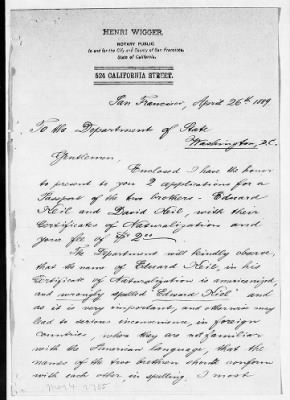 HENRI WIGGER,
NOTARY PUBLIC,
In and for the City and County of San Francisco,
State of California.
524 CALIFORNIA STREET.
San Francisco, April 26th 1889
To the Department of State
Washington, D.C.
Gentlemen,
Enclosed I have the honor
to present to you 2 applications for a
Passport of the two brothers - Edward
Keil and David Keil, with their
Certificates of Naturalization and
your fee of $ 2.00
The Department will kindly observe,
that the name of Edward Keil, in his
Certificate of Naturalization is americanized,
and wrongly spelled "Edward Kiel" and
as it is very important, and otherwise may
lead to serious inconvenience, in foreign
countries, where they are not familiar
with the American language, that the
names of the two brothers should conform
with each other in spelling. I most